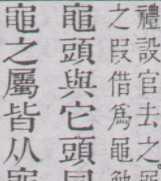 禮設官去之
之叚借爲黽勉
黽頭與它頭同
黽之屬皆从黽